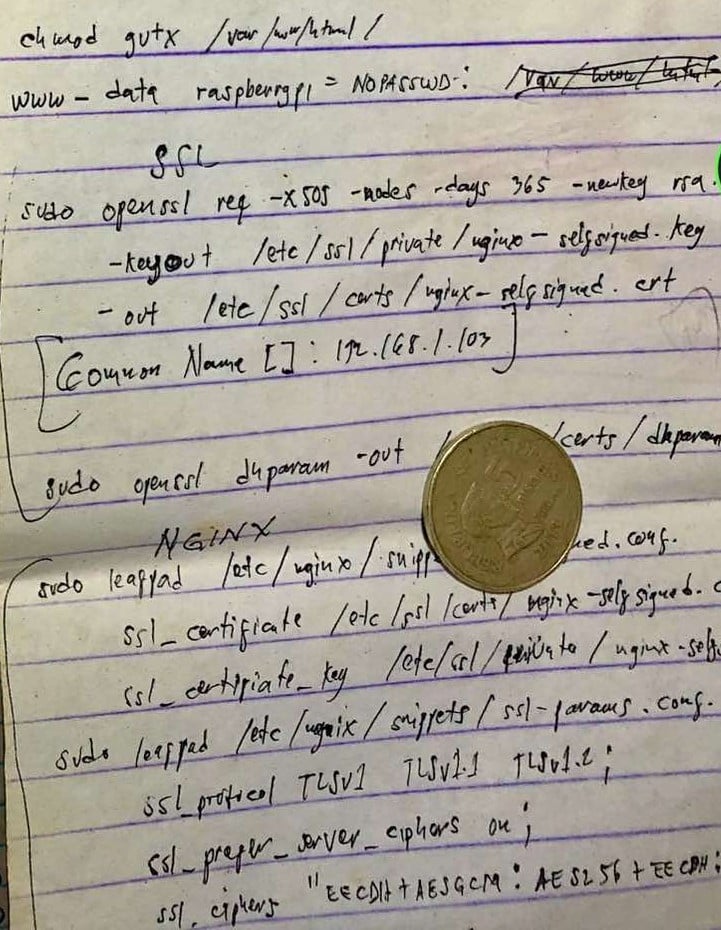 chmod gutx /var/www/html/
www-data raspberrypi = NOPASSWD: /var/www/html
SSL
sudo openssl req -x505 -nodes -days 365 -newkey rsa.
-keyout /etc/ssl/private/nginx-selfsigned.key
-out /etc/ssl/certs/nginx-selfsigned.crt
[Common Name []: 192.168.1.103]
sudo openssl dhparam -out / /certs/dhparam
NGINX
sudo leafpad /etc/nginx/snipp ned.conf.
ssl_certificate /etc/ssl/certs/nginx-selfsigned.c
ssl_certificate_key /etc/ssl/private/nginx-self
sudo leafpad /etc/nginx/snippets/ssl-params.conf.
ssl_protocol TLSv1 TLSv1.1 TLSv1.2;
ssl_prefer_server_ciphers on;
ssl_ciphers "EECDH+AESGCM: AES256+EECDH: